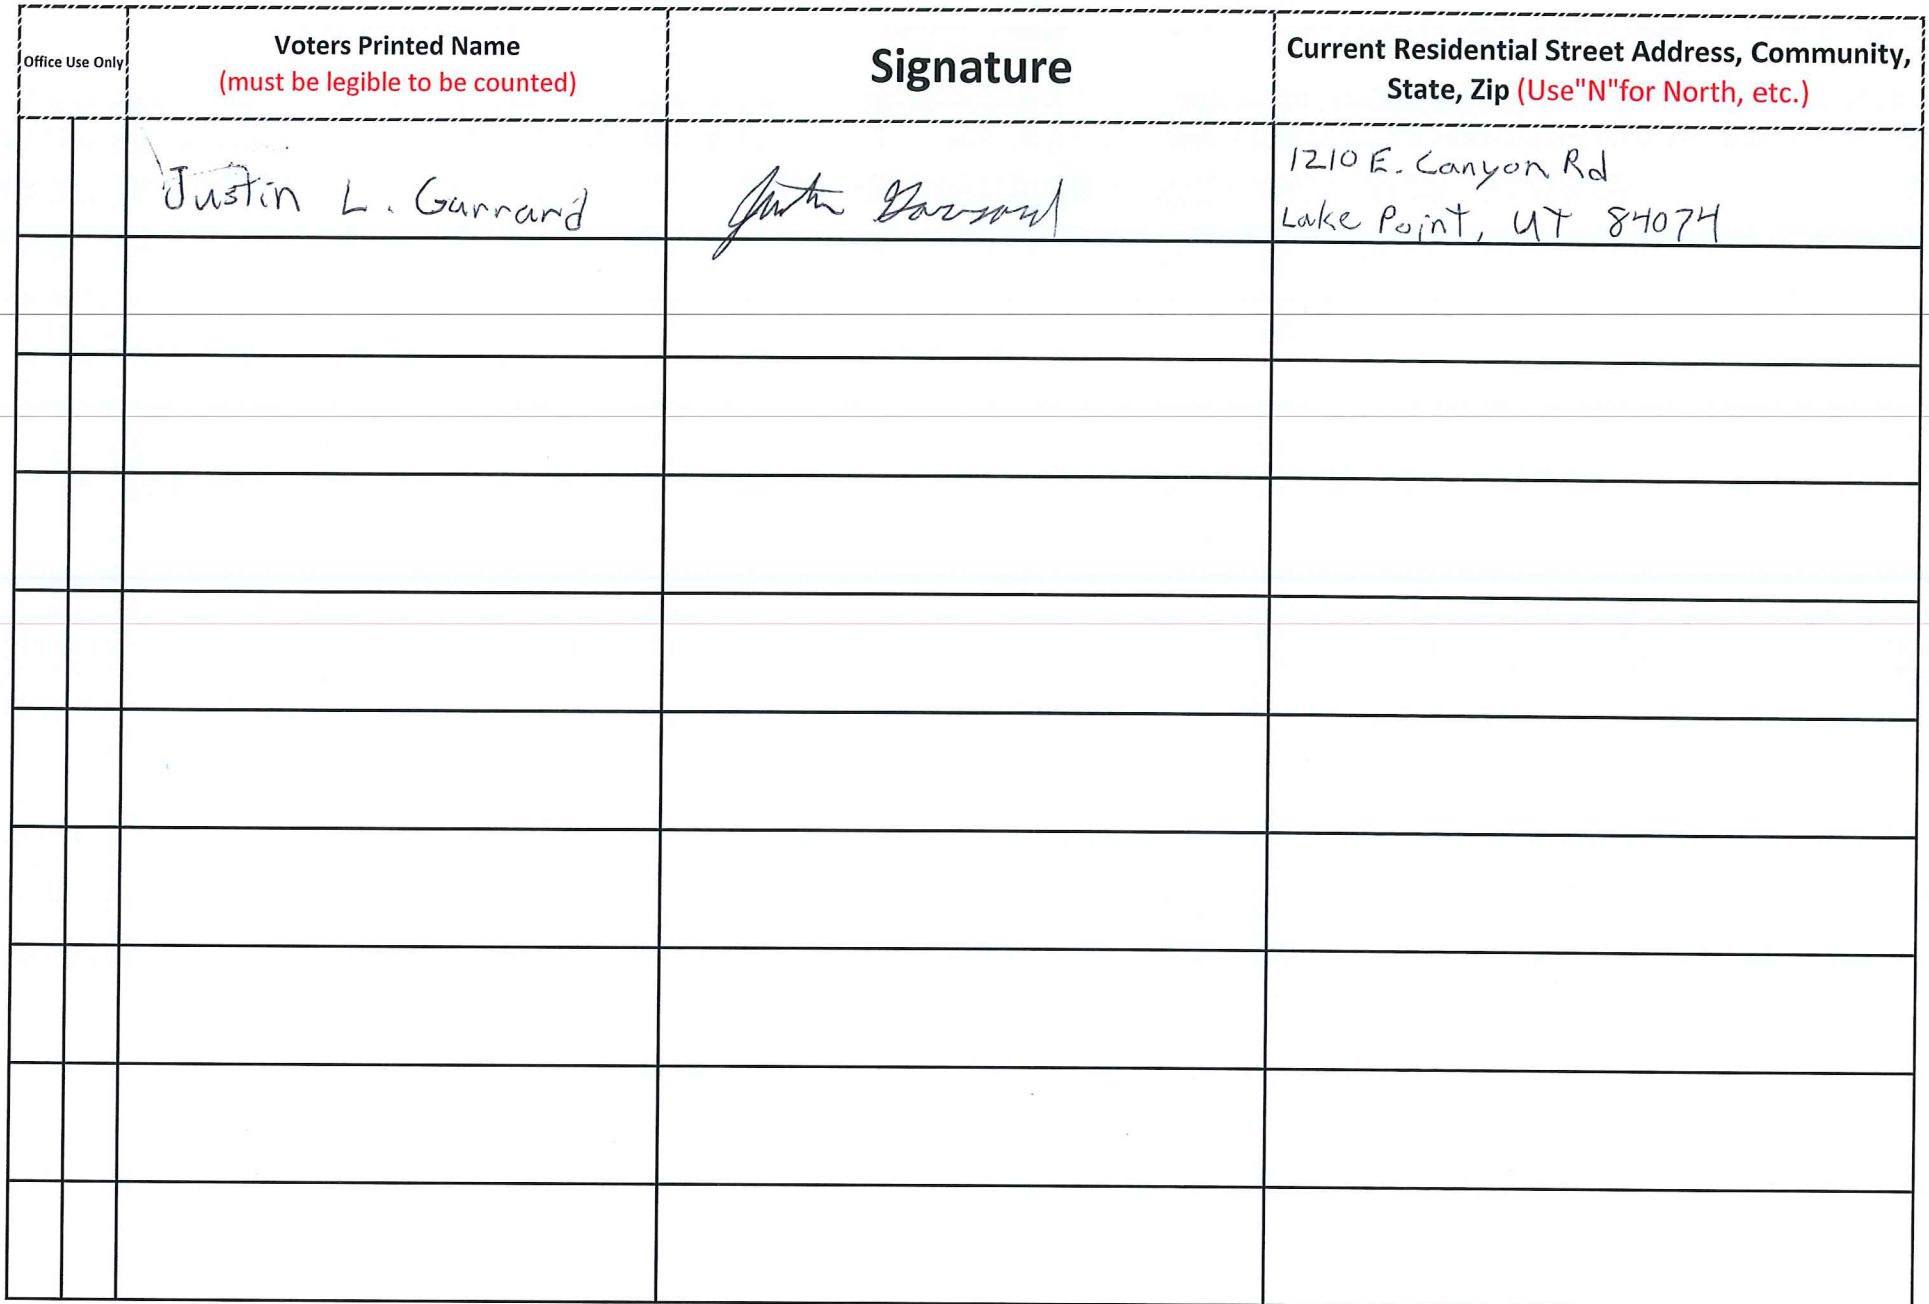 Office Use Only
Voters Printed Name
(must be legible to be counted)
Signature
Current Residential Street Address, Community,
State, Zip (Use"N"for North, etc.)
Justin L. Garrard
Justin Garrard
1210 E. Canyon Rd
Lake Point, UT 84074